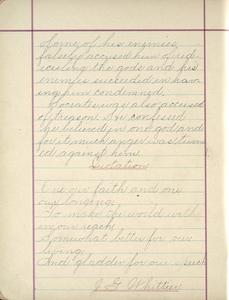 Some of his enemies
falsely accused him of rid
iculing the gods and his
enemies succeeded in hav
ing him condemned.
Socrates was also accused
of treason. He confessed
he believed in one god and
for it much anger was turned
against him.
Quotation
One our faith and one
our longing
To make the world with
in our reach
Somewhat better for our
living
And gladder for our speech
J. G. Whittier